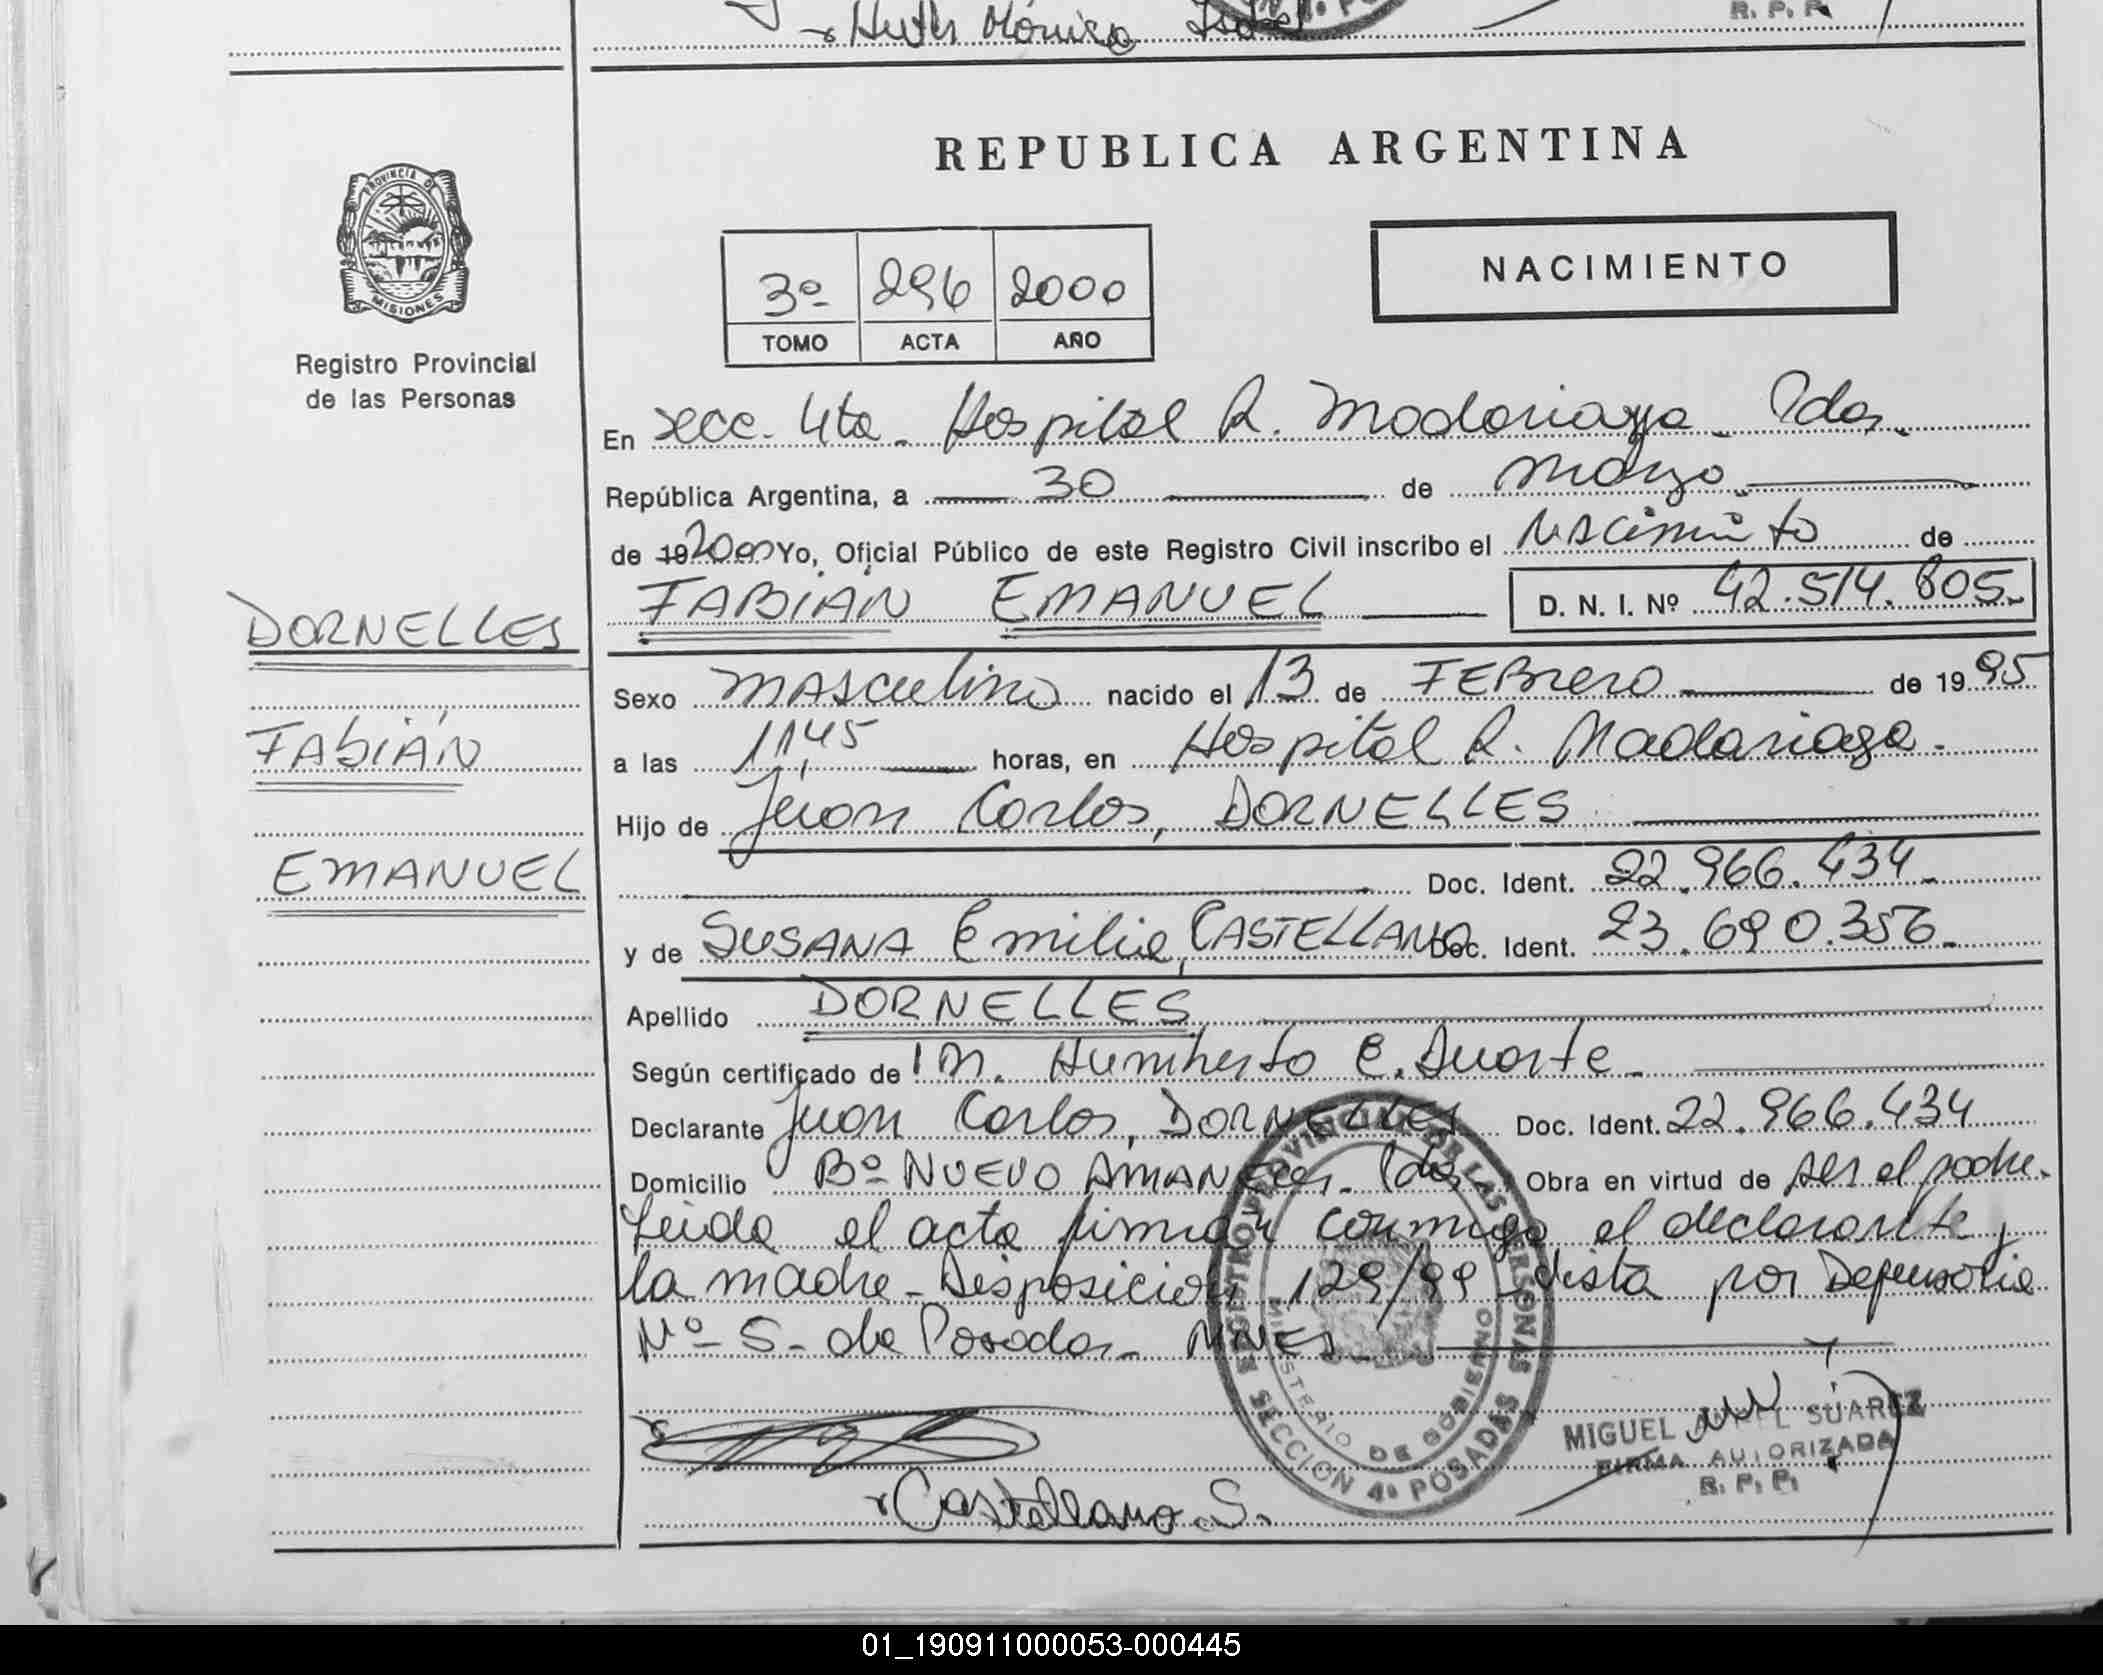 Huth Mónica Isabel
R. P. P.
REPUBLICA ARGENTINA
PROVINCIA DE
MISIONES
Registro Provincial
de las Personas
NACIMIENTO
3º 296 2000
TOMO ACTA AÑO
En secc. 4ta. Hospital R. Madariaga. Pdas.
República Argentina, a 30 de marzo
de 19 2000 Yo, Oficial Público de este Registro Civil inscribo el Nacimiento de
FABIÁN EMANUEL D. N. I. Nº 42.514.805.
DORNELLES
FABIÁN
EMANUEL
Sexo masculino nacido el 13 de FEBrero de 19 95
a las 11,45 horas, en Hospital R. Madariaga.
Hijo de Juan Carlos, DORNELLES
Doc. Ident. 22.966.434.
y de SUSANA Emilia, CASTELLANO Doc. Ident. 23.690.356.
Apellido DORNELLES
Según certificado de Humberto E. Duarte.
Declarante Juan Carlos, DORNELLES Doc. Ident. 22.966.434
Domicilio Bº NUEVO AMANEcer. Pdas. Obra en virtud de ser el padre.
Leida el acta firman conmigo el declarante y
la madre - Disposicion 129/99 vista por Defensoria
Nº 5 - de Posadas - MNES.
REGISTRO PROVINCIAL DE LAS PERSONAS
MINISTERIO DE GOBIERNO
SECCION 4ª POSADAS
MIGUEL ANGEL SUAREZ
FIRMA AUTORIZADA
R. P. P.
Castellano. S.
01_190911000053-000445